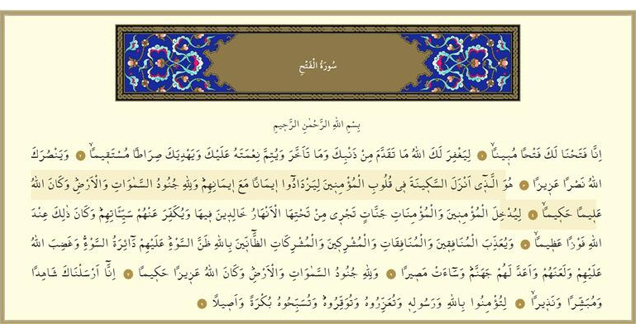 سُورَةُ الْفَتْحِ
بِسْمِ اللهِ الرَّحْمٰنِ الرَّحٖيمِ
اِنَّا فَتَحْنَا لَكَ فَتْحًا مُبٖينًاۙ ۝ لِيَغْفِرَ لَكَ اللهُ مَا تَقَدَّمَ مِنْ ذَنْبِكَ وَمَا تَاَخَّرَ وَيُتِمَّ نِعْمَتَهُ عَلَيْكَ وَيَهْدِيَكَ صِرَاطًا مُسْتَقٖيمًاۙ ۝ وَيَنْصُرَكَ
اللهُ نَصْرًا عَزٖيزًا ۝ هُوَ الَّذٖٓى اَنْزَلَ السَّكٖينَةَ فٖى قُلُوبِ الْمُؤْمِنٖينَ لِيَزْدَادُٓوا اٖيمَانًا مَعَ اٖيمَانِهِمْؕ وَلِلّٰهِ جُنُودُ السَّمٰوَاتِ وَالْاَرْضِؕ وَكَانَ اللهُ
عَلٖيمًا حَكٖيمًاۙ ۝ لِيُدْخِلَ الْمُؤْمِنٖينَ وَالْمُؤْمِنَاتِ جَنَّاتٍ تَجْرٖى مِنْ تَحْتِهَا الْاَنْهَارُ خَالِدٖينَ فٖيهَا وَيُكَفِّرَ عَنْهُمْ سَيِّـَٔاتِهِمْؕ وَكَانَ ذٰلِكَ عِنْدَ
اللهِ فَوْزًا عَظٖيمًاۙ ۝ وَيُعَذِّبَ الْمُنَافِقٖينَ وَالْمُنَافِقَاتِ وَالْمُشْرِكٖينَ وَالْمُشْرِكَاتِ الظَّٓانّٖينَ بِاللهِ ظَنَّ السَّوْءِؕ عَلَيْهِمْ دَٓائِرَةُ السَّوْءِۚ وَغَضِبَ اللهُ
عَلَيْهِمْ وَلَعَنَهُمْ وَاَعَدَّ لَهُمْ جَهَنَّمَؕ وَسَٓاءَتْ مَصٖيرًا ۝ وَلِلّٰهِ جُنُودُ السَّمٰوَاتِ وَالْاَرْضِؕ وَكَانَ اللهُ عَزٖيزًا حَكٖيمًا ۝ اِنَّٓا اَرْسَلْنَاكَ شَاهِدًا
وَمُبَشِّرًا وَنَذٖيرًاۙ ۝ لِتُؤْمِنُوا بِاللهِ وَرَسُولِهٖ وَتُعَزِّرُوهُ وَتُوَقِّرُوهُؕ وَتُسَبِّحُوهُ بُكْرَةً وَاَصٖيلًا ۝